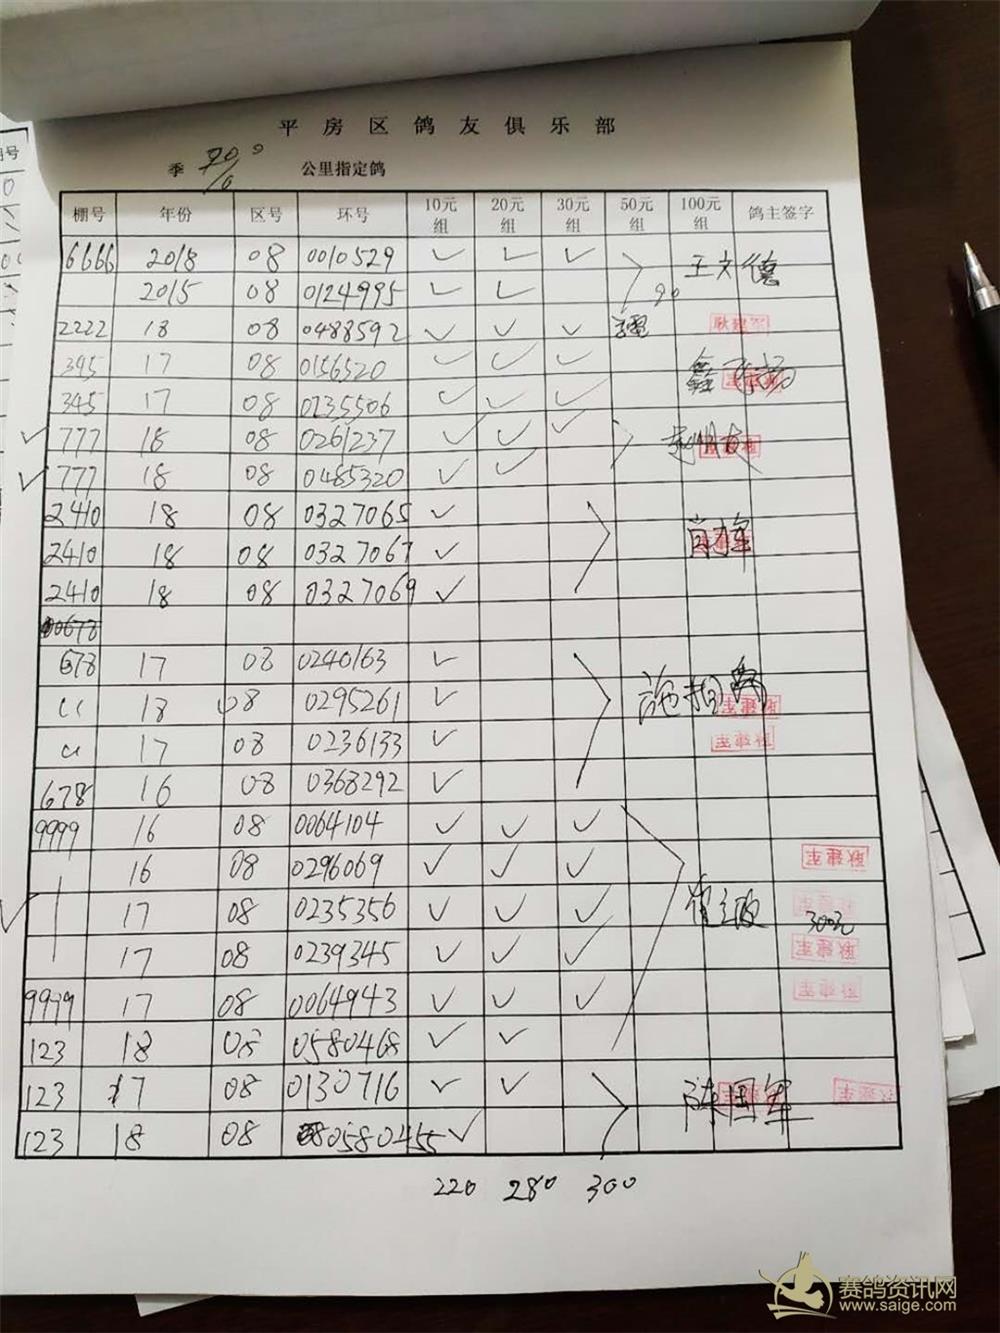 平房区鸽友俱乐部
季 公里指定鸽
棚号 年份 区号 环号 10元组 20元组 30元组 50元组 100元组 鸽主签字
6666 2018 08 0010529 ✓ ✓ ✓ 王文德
2015 08 0124995 ✓ ✓ 90
2222 18 08 0488592 ✓ ✓ ✓ 耿建军
345 17 08 0156520 ✓ ✓ ✓
345 17 08 0235506 ✓ ✓ ✓
✓ 777 18 08 0261237 ✓ ✓ ✓
✓ 777 18 08 0485320 ✓ ✓
2410 18 08 0327065 ✓
2410 18 08 0327067 ✓
2410 18 08 0327069 ✓
678 17 08 0240163 ✓
18 08 0295261 ✓ 耿建军
17 08 0236133 ✓ 耿建军
678 16 08 0368292 ✓
9999 16 08 0064104 ✓ ✓ ✓
16 08 0296069 ✓ ✓ ✓ 耿建军
✓ 17 08 0235356 ✓ ✓ ✓ 300元 耿建军
17 08 0239345 ✓ ✓ ✓ 耿建军
9999 17 08 0064943 ✓ ✓ ✓ 耿建军
123 18 08 0580468 ✓ ✓
123 17 08 0130716 ✓ ✓ 陈国军 耿建军
123 18 08 0580455 ✓
220 280 300
赛鸽资讯网
www.saige.com